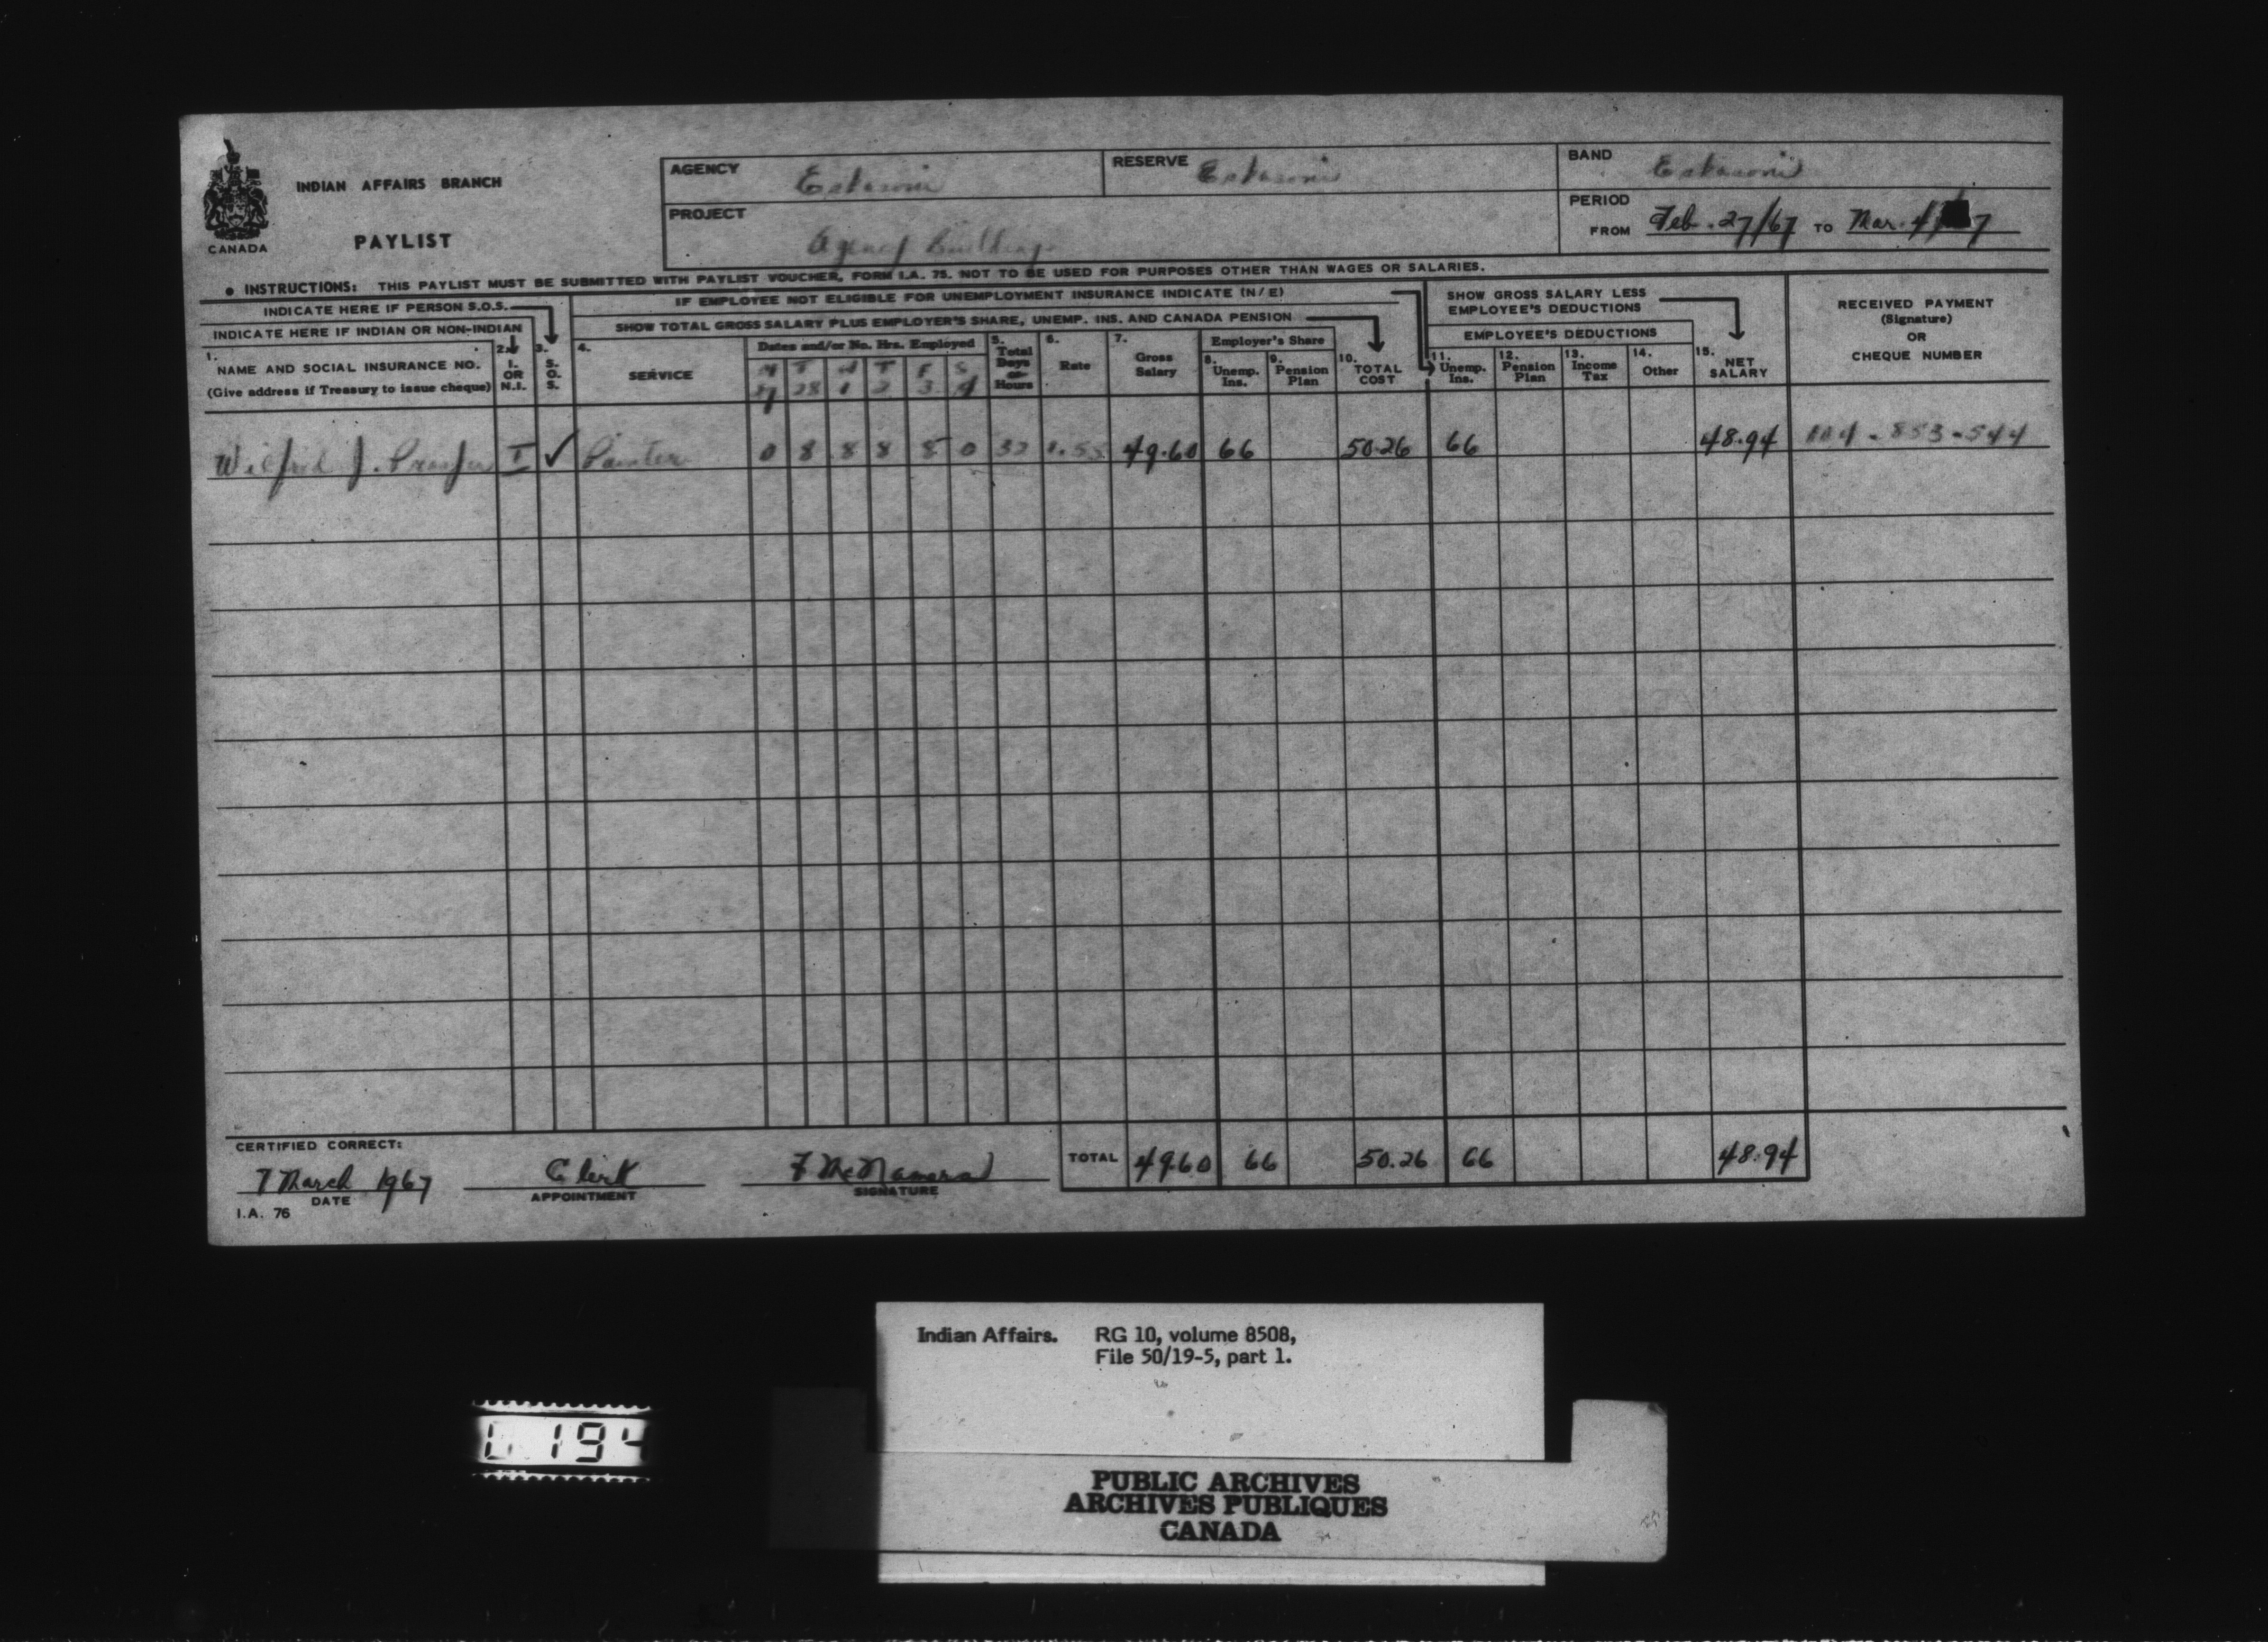 CANADA
INDIAN AFFAIRS BRANCH
PAYLIST
AGENCY Eskasoni
RESERVE Eskasoni
BAND Eskasoni
PROJECT Agency Buildings
PERIOD
FROM Feb. 27/67 TO Mar. 4/ 7
• INSTRUCTIONS: THIS PAYLIST MUST BE SUBMITTED WITH PAYLIST VOUCHER, FORM I.A. 75. NOT TO BE USED FOR PURPOSES OTHER THAN WAGES OR SALARIES.
INDICATE HERE IF PERSON S.O.S.
INDICATE HERE IF INDIAN OR NON-INDIAN
IF EMPLOYEE NOT ELIGIBLE FOR UNEMPLOYMENT INSURANCE INDICATE (N/E)
SHOW TOTAL GROSS SALARY PLUS EMPLOYER'S SHARE, UNEMP. INS. AND CANADA PENSION
SHOW GROSS SALARY LESS
EMPLOYEE'S DEDUCTIONS
EMPLOYEE'S DEDUCTIONS
RECEIVED PAYMENT
(Signature)
OR
CHEQUE NUMBER
1. NAME AND SOCIAL INSURANCE NO.
(Give address if Treasury to issue cheque)
2. I. OR N.I.
3. S. O. S.
4. SERVICE
Dates and/or No. Hrs. Employed
M T W T F S
27 28 1 2 3 4
5. Total Days or Hours
6. Rate
7. Gross Salary
Employer's Share
8. Unemp. Ins.
9. Pension Plan
10. TOTAL COST
11. Unemp. Ins.
12. Pension Plan
13. Income Tax
14. Other
15. NET SALARY
Wilfred J. I ✓ Painter 0 8 8 8 8 0 32 1.55 49.60 66 50.26 66 48.94 104-853-544
CERTIFIED CORRECT:
7 March 1967 Clerk F McNamara
DATE APPOINTMENT SIGNATURE
TOTAL 49.60 66 50.26 66 48.94
I.A. 76
Indian Affairs. RG 10, volume 8508,
File 50/19-5, part 1.
194
PUBLIC ARCHIVES
ARCHIVES PUBLIQUES
CANADA